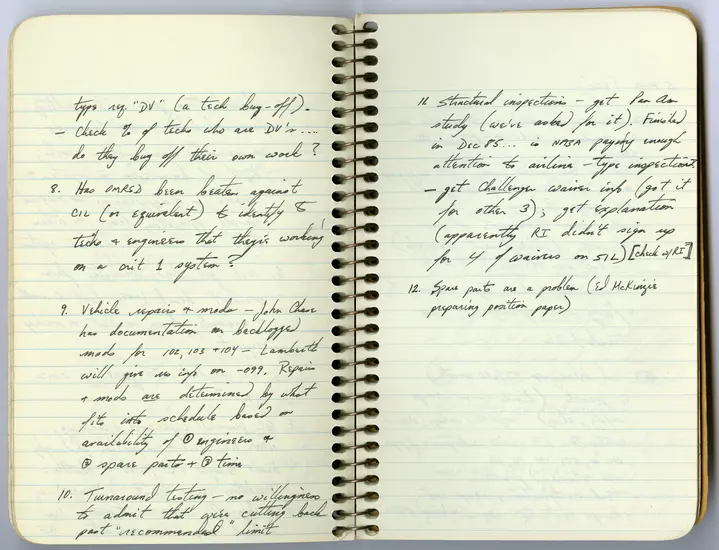 type reg. "DV" (a tech buy-off).
- Check % of techs who are DV's....
do they buy off their own work?
8. Has OMRSD been beaten against
CIL (or equivalent) to identify to
techs & engineers that they're working
on a crit 1 system?
9. Vehicle repairs & mods - John Chase
has documentation on backlogged
mods for 102, 103 + 104 - Lamberth
will give us info on -099. Repairs
& mods are determined by what
fits into schedule based on
availability of ① engineers &
② spare parts + ③ time
10. Turnaround testing - no willingness
to admit that we're cutting back
past "recommended" limit
11. Structural inspections - get Pan Am
study (we've asked for it). Finished
in Dec 85... is NASA paying enough
attention to airline-type inspections
- get Challenger waiver info (got it
for other 3); get explanation
(apparently RI didn't sign up
for 4 of waivers on 51L) [check w/RI]
12. Spare parts are a problem (Ed McKinzie
preparing position paper)